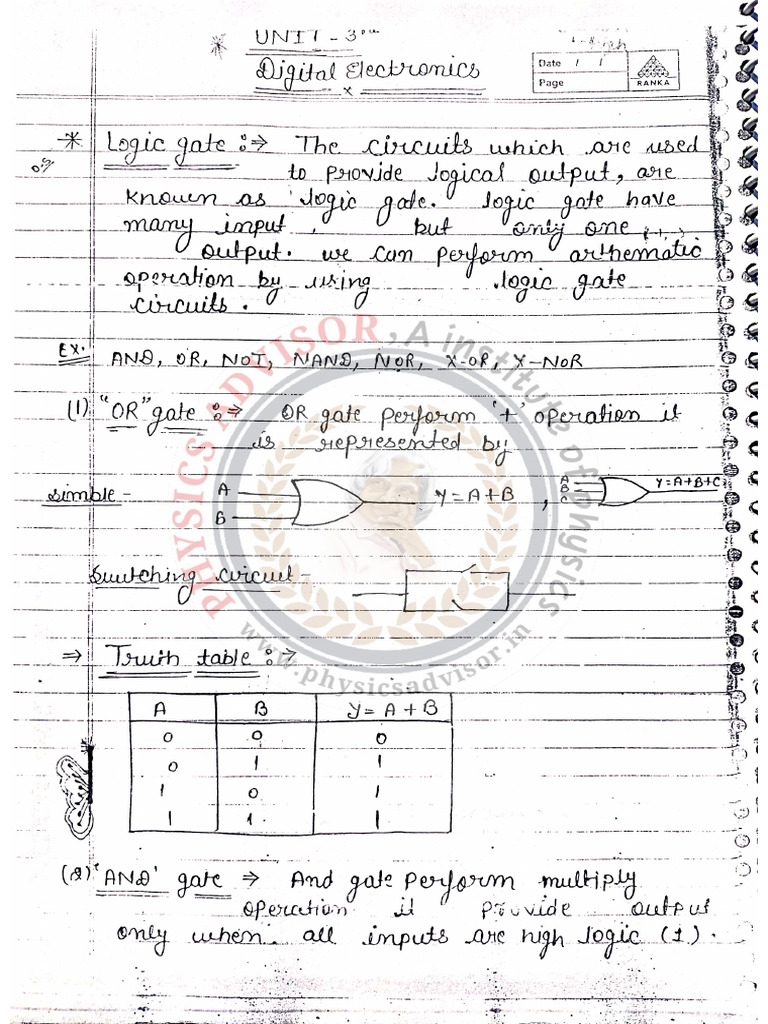 * UNIT - 3
Digital Electronics
x
Date / /
Page
RANKA
* Logic gate :⇒ The circuits which are used
to provide logical output, are
known as logic gate. logic gate have
many input, but only one
output. we can perform arthematic
operation by using logic gate
circuits.
Ex. AND, OR, NOT, NAND, NOR, X-OR, X-NOR
(1) "OR" gate :⇒ OR gate perform '+' operation it
is represented by
simble - A B Y = A + B , A B C Y = A+B+C
Switching circuit -
⇒ Truth table :→
A B Y = A + B
0 0 0
0 1 1
1 0 1
1 1 1
(2) 'AND' gate ⇒ And gate perform multiply
operation it provide output
only when all inputs are high logic (1).
PHYSICS ADVISOR, A institute of physics
www.physicsadvisor.in